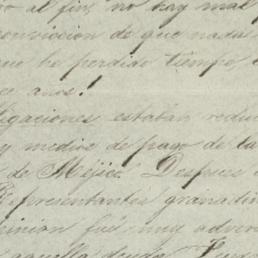 al fin, no hay mal
conviccion de que nada
he perdido tiempo,
años!
ligaciones estaban redu
y medios de pago de la
de Méjico. Despues
Representantes granadin
inion fué muy adver
aquella deuda